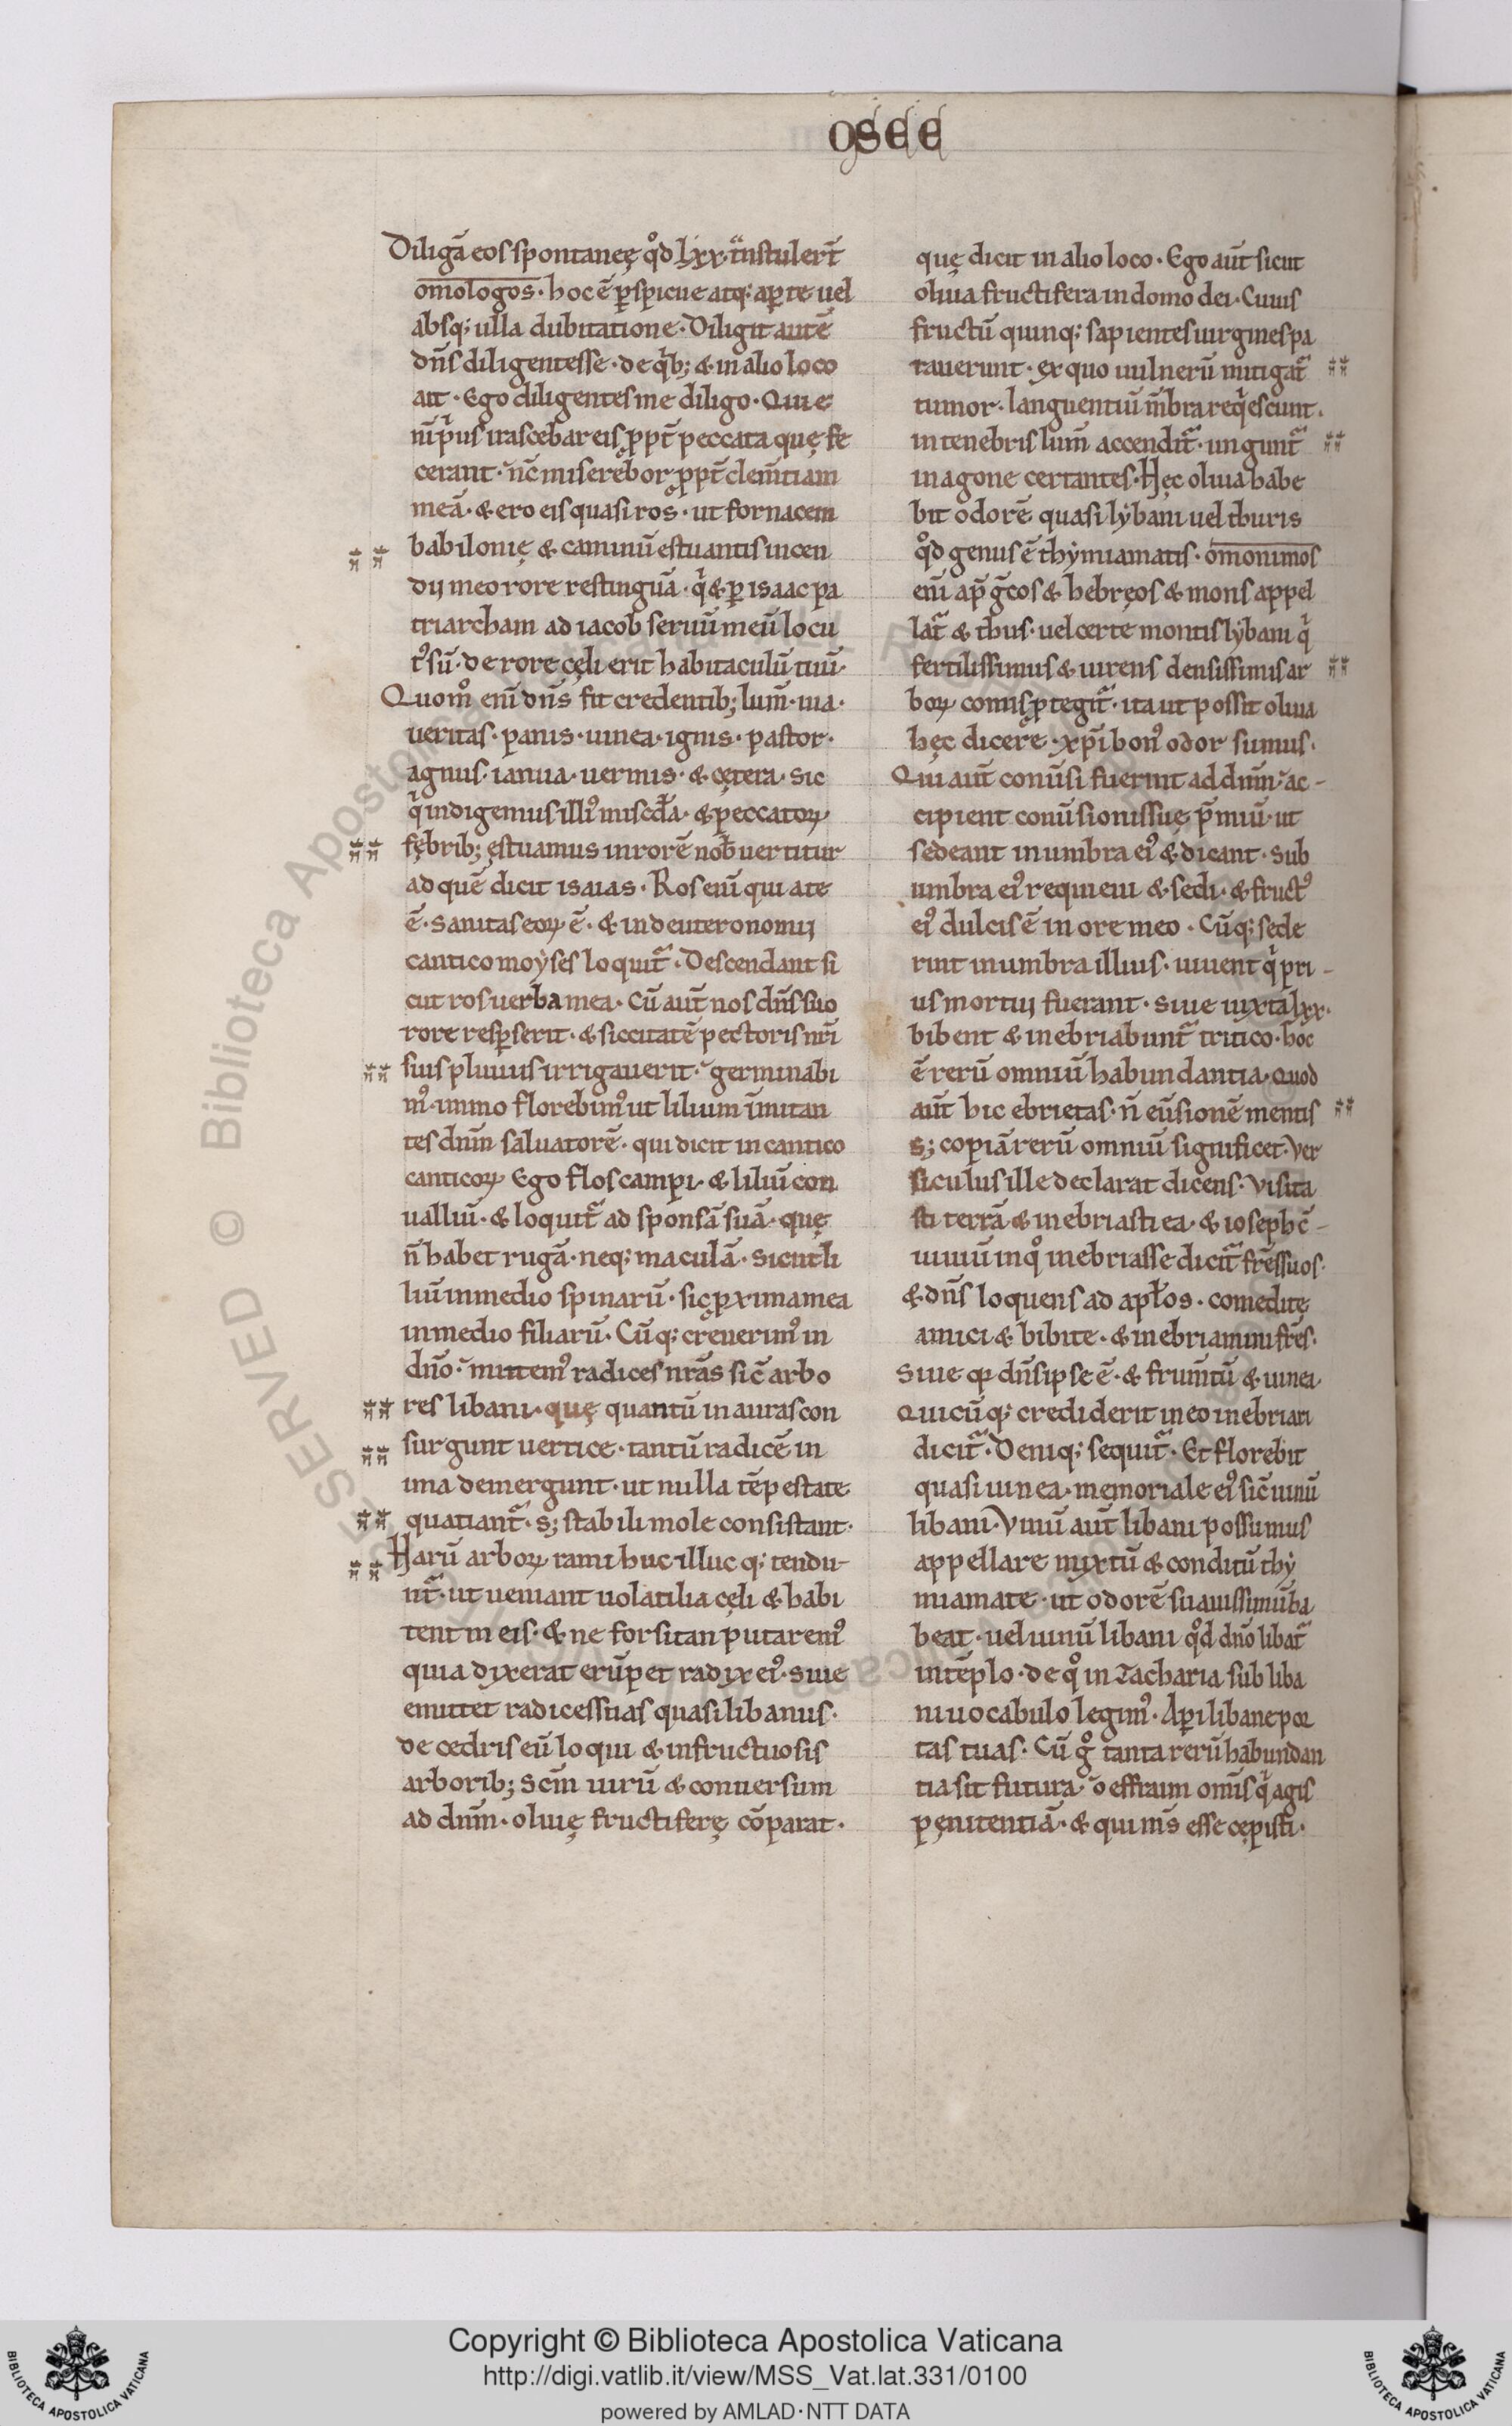 OSEE
Diligā eos spontaneę qͦd lxx. tᵃnstulerт̄
omologos. hoc ē ꝑspicue atq; aꝑte uel
absq; ulla dubitatione. Diligit autē
dn̄s diligentes se. de qⁱb; & in alio loco
ait. Ego diligentes me diligo. Qui e
ni pⁱus irascebar eis ꝓpt̄ peccata quę fe
cerant. nc̄ miserebor ꝓpt̄ clem̄tiam
meā. & ero eis quasi ros. ut fornacem
babilonię & caminū estuantis incen
dij meo rore restinguā. qⁱ & ꝑ isaac pa
triarcham ad iacob seruū meū locu
tꝰ sū. de rore cęli erit habitaculū tuū.
Quom̊ eni dn̄s fit credentib; lum̄. uia.
ueritas. panis. uinea. ignis. pastor.
agnus. ianua. uermis. & cętera. sic
qⁱ indigemus illiꝰ miscđa. & peccatoꝝ
fębrib; ęstuamus in rorē nob̄ uertitur
ad quē dicit isaias. Ros eni qui a te
ē. sanitas eoꝝ ē. & in deuteronomij
cantico moẏses loquit᷑. Descendant si
cut ros uerba mea. Cū aut̄ nos dn̄s suo
rore resꝑserit. & siccitatē pectoris nr̄i
suis pluuiis irrigauerit. germinabi
mꝰ. immo florebimꝰ ut lilium imitan
tes dn̄m saluatorē. qui dicit in cantico
canticoꝝ Ego flos campi. & liliū con
ualliū. & loquit᷑ ad sponsā suā. quę
n̄ habet rugā. neq; maculā. Sicut li
liū in medio spinarū. sic ꝓxima mea
in medio filiarū. Cūq; creuerimꝰ in
dn̄o. mittemꝰ radices nr̄as sic̄ arbo
res libani. quę quantū in auras con
surgunt uertice. tantū radicē in
ima demergunt. ut nulla tēpestate
quatiant᷑. s; stabili mole consistant.
Harū arboꝝ rami huc illuc q; tendu-
nt᷑. ut ueniant uolatilia cęli & habi
tent in eis. & ne forsitan putaremꝰ
quia dixerat erūpet radix eiꝰ. siue
emittet radices suas quasi libanus.
de cedris eū loqui & infructuosis
arborib; scm̄ uirū & conuersum
ad dn̄m. oliuę fructiferę cōparat.
quę dicit in alio loco. Ego aut̄ sicut
oliua fructifera in domo dei. Cuius
fructū quinq; sapientes uirgines pa
rauerunt. ex quo uulnerū mitigat᷑
tumor. languentiū m̄bra reqⁱescunt.
in tenebris lum̄ accendit᷑. ungunt᷑
in agone certantes. Hęc oliua habe
bit odorē quasi lẏbani uel thuris
qͦd genus ē thẏmiamatis. omonimos
eni ap̄ g̃cos & hebręos & mons appel
lat᷑ & thus. uel certe montis lẏbani qⁱ
fertilissimus & uirens densissimis ar
boꝝ comis ꝓtegit᷑. ita ut possit oliua
hęc dicere. xp̄i bonꝰ odor sumus.
Qui aut̄ conūsi fuerint ad dn̄m. ac-
cipient conūsionis suę p̄miū. ut
sedeant in umbra eiꝰ & dicant. Sub
umbra eiꝰ requieui & sedi. & fructꝰ
eiꝰ dulcis ē in ore meo. Cūq; sede
rint in umbra illius. uiuent qⁱ pri-
us mortui fuerant. siue iuxta lxx.
bibent & inebriabunt᷑ tritico. hoc
ē rerū omniū habundantia. Quod
aut̄ hic ebrietas. n̄ eūsionē mentis
s; copiā rerū omniū significet. Ver
siculus ille declarat dicens. Visita
sti terrā & inebriasti ea. & ioseph c̄-
uiuiū in qͦ inebriasse dicit᷑ fr̄es suos.
& dn̄s loquens ad apłos. comedite
amici & bibite. & inebriamini fr̄es.
Siue qꝛ dn̄s ipse ē. & frum̄tū & uinea.
Quicūq; crediderit in eo inebriari
dicit᷑. Deniq; sequit᷑. Et florebit
quasi uinea. memoriale eiꝰ sic̄ uinū
libani. Vinū aut̄ libani possumus
appellare mixtū & conditū thẏ
miamate. ut odorē suauissimū ha
beat. uel uinū libani qͦd dn̄o libat᷑
in tēplo. de qͦ in Zacharia sub liba
ni uocabulo legimꝰ. Aꝑi libane por
tas tuas. Cū gͦ tanta rerū habundan
tia sit futura. o effraim om̄s qⁱ agis
pęnitentiā. & qui m̄s esse cępisti.
Copyright © Biblioteca Apostolica Vaticana
http://digi.vatlib.it/view/MSS_Vat.lat.331/0100
powered by AMLAD·NTT DATA
BIBLIOTECA APOSTOLICA VATICANA
BIBLIOTECA APOSTOLICA VATICANA